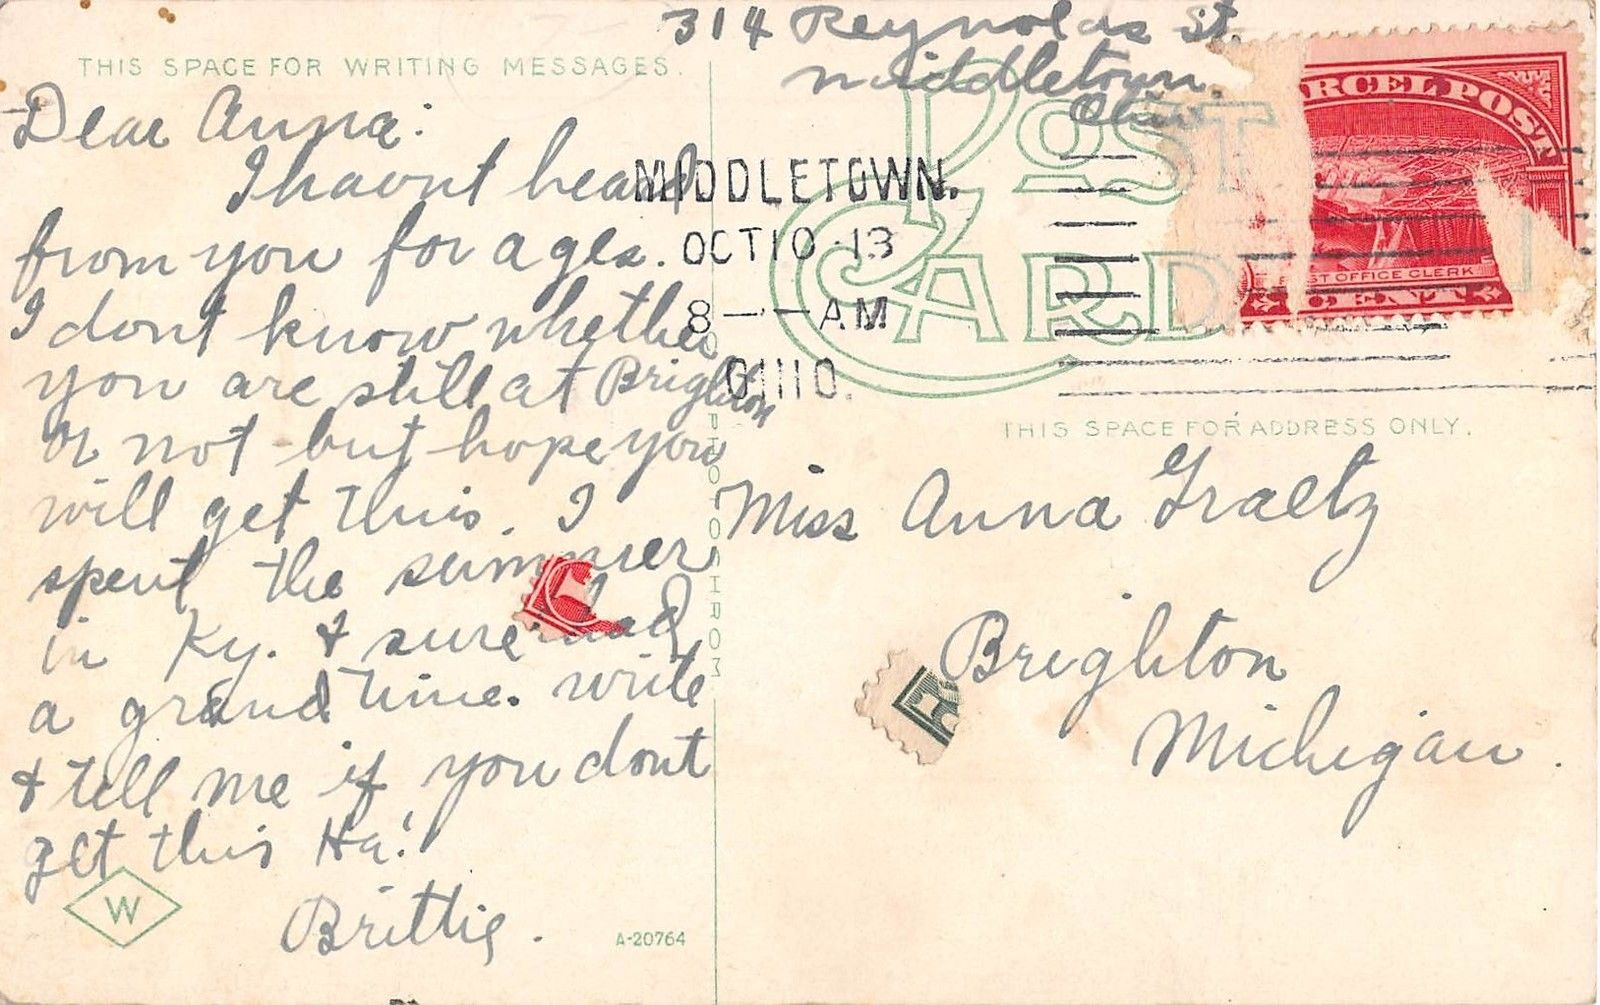 314 Reynolds St.
Middletown.
Ohio
THIS SPACE FOR WRITING MESSAGES.
POST
CARD
PARCEL POST
POST OFFICE CLERK
CENT
MIDDLETOWN.
OCT 10 '13
8 — AM
OHIO.
Dear Anna:
I havnt heard
from you for ages.
I dont know whether
you are still at Brighton
or not but hope you
will get this. I
spent the summer
in Ky. & sure had
a grand time. write
& tell me if you dont
get this Ha!
Brittie.
W
A-20764
PHOTOCHROM
THIS SPACE FOR ADDRESS ONLY.
Miss Anna Graetz
Brighton
Michigan.